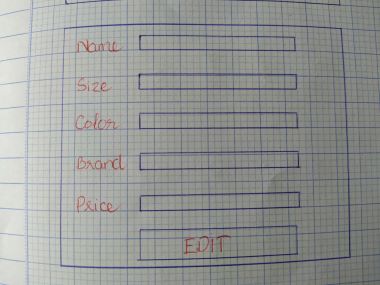 Name
Size
Color
Brand
Price
EDIT